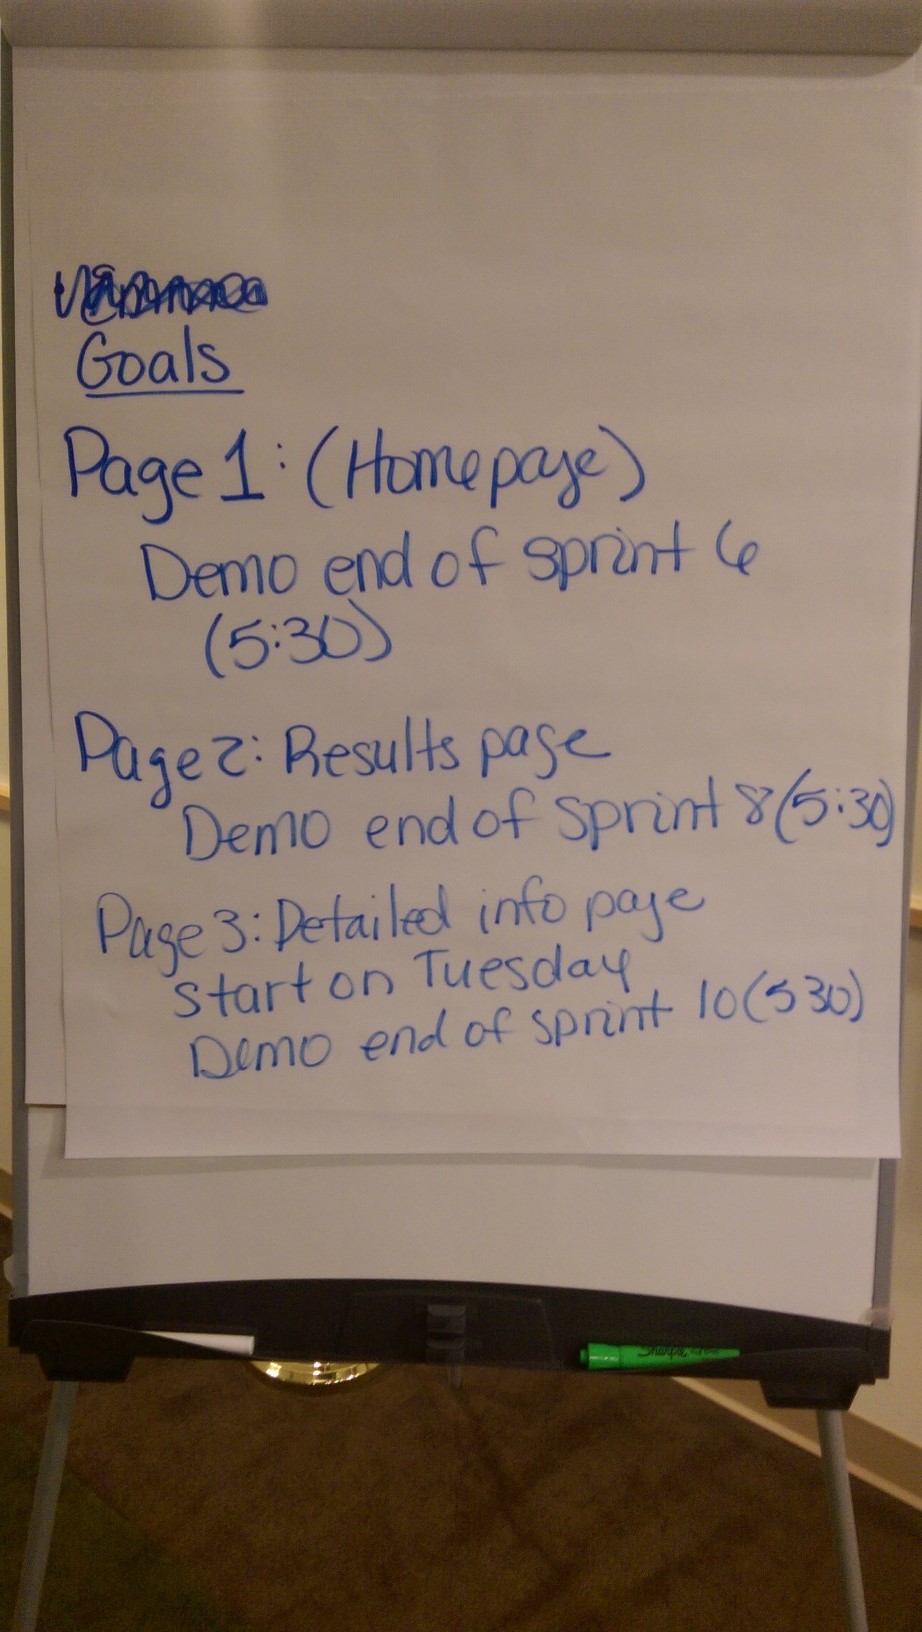 Goals
Page 1: (Homepage)
Demo end of sprint 6
(5:30)
Page 2: Results page
Demo end of sprint 8 (5:30)
Page 3: Detailed info page
start on Tuesday
Demo end of sprint 10 (5 30)
Sharpie